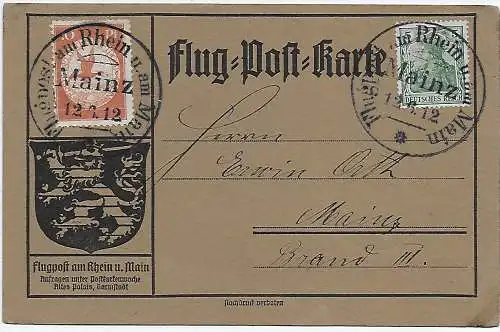 Flugpost am Rhein u. am Main
Mainz
12.6.12
Flug-Post-Karte
Flugpost am Rhein u. am Main
Mainz
12.6.12
DEUTSCHES REICH
Herrn
Erwin Orth
Mainz
Brand III.
Flugpost am Rhein u. Main
Anfragen unter Postkartenwoche
Altes Palais, Darmstadt
Nachdruck verboten